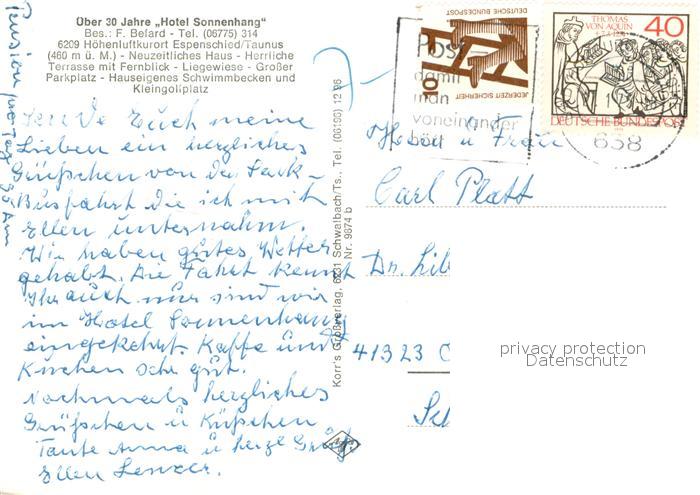 Über 30 Jahre „Hotel Sonnenhang"
Bes.: F. Belard - Tel. (06775) 314
6209 Höhenluftkurort Espenschied/Taunus
(460 m ü. M.) - Neuzeitliches Haus - Herrliche
Terrasse mit Fernblick - Liegewiese - Großer
Parkplatz - Hauseigenes Schwimmbecken und
Kleingolfplatz
Pension pro Tag 35 DM
Euch meine
Lieben ein herzliches
Grüßchen von der Sack-
Busfahrt die ich mit
Ellen unternahm.
Wir haben gutes Wetter
gehabt. Die Fahrt kennt
Ihr auch nur sind wir
im Hotel Sonnenhang
eingekehrt. Kaffe und
Kuchen sehr gut.
Nochmals herzliches
Grüßchen u Küßchen
Tante Anna u herze Grüße
Ellen
Korr's Großverlag, 6231 Schwalbach/Ts., Tel. (06196) 12 96
Nr. 9874 b
Agfa
DEUTSCHE BUNDESPOST
JEDERZEIT SICHERHEIT
10
THOMAS
VON AQUIN
40
DEUTSCHE BUNDESPOST
Post
damit
man
voneinander
hört
638
Herrn u Frau
Carl Platt
Dr. Lil
41323 C
Sch
privacy protection
Datenschutz